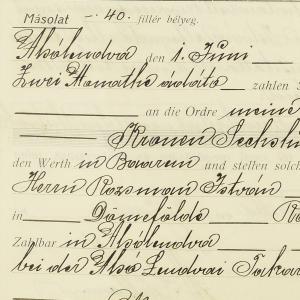 Másolat —. 40. fillér bélyeg.
Alsólendva den 1. Juni
Zwei Monathe a dato zahlen
an die Ordre meine
Kronen Sechshu
den Werth in Baarem und stellen solch
Herrn Rozsman István
in Dögnefölde
Zahlbar in Alsólendva
bei der Alsó Lendvai Takar